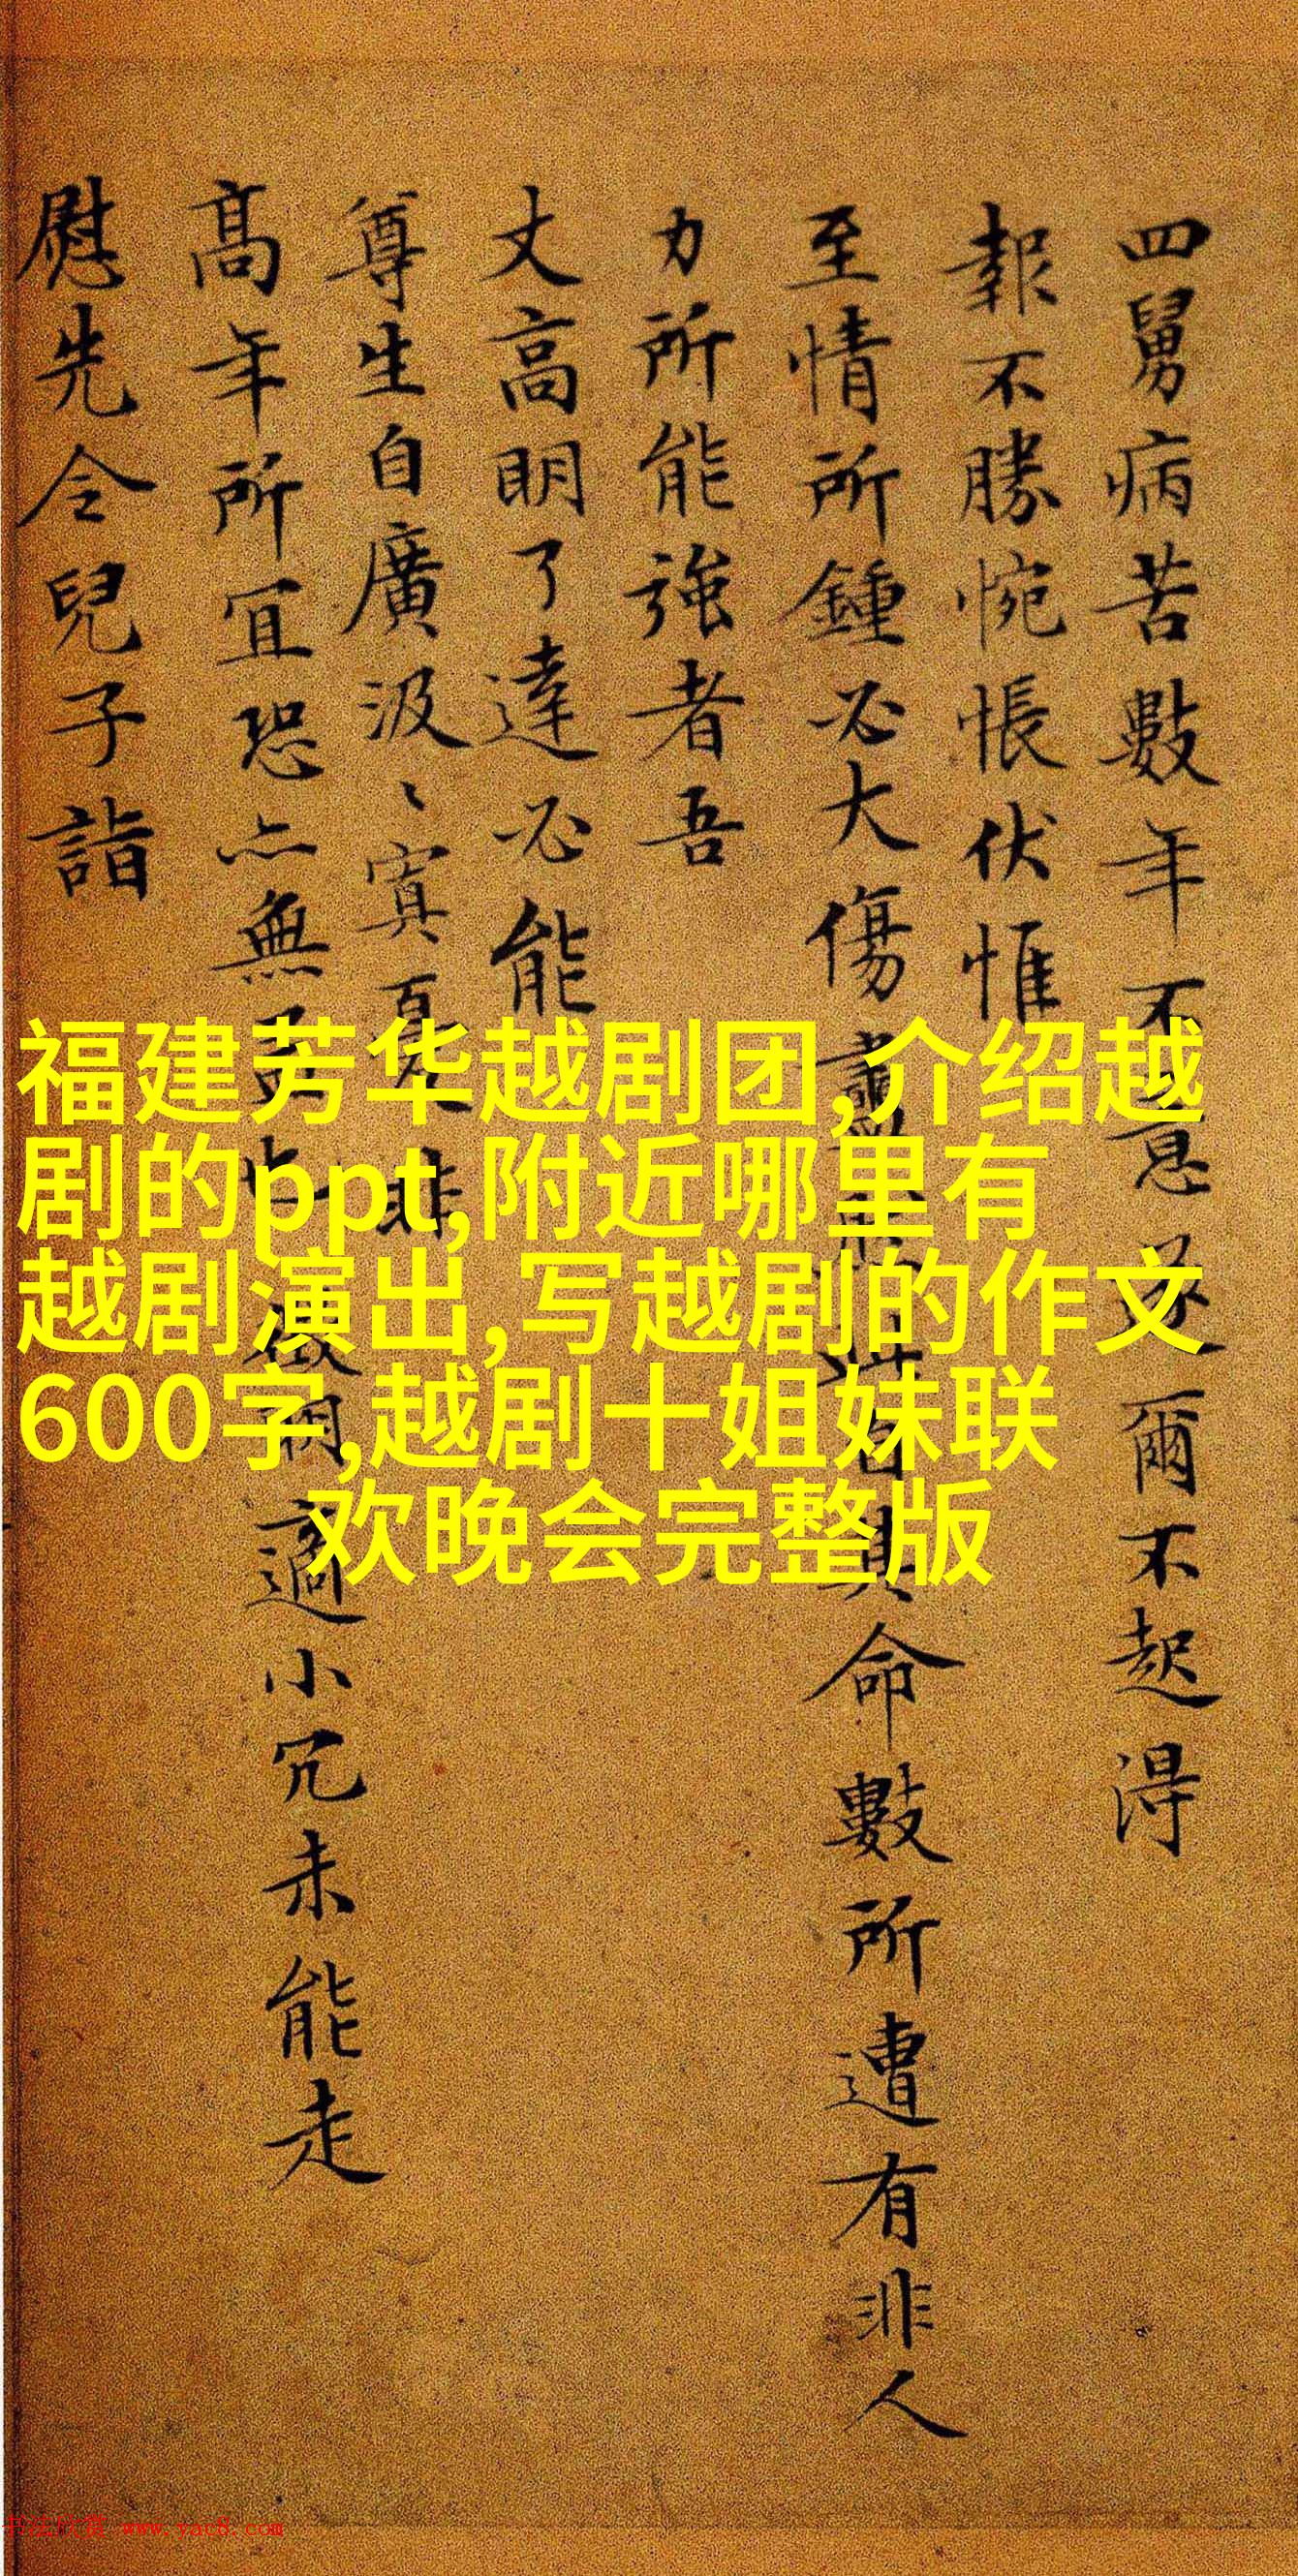 四舅病苦數年不意遂爾不起得
報不勝惋悵伏惟
至情所鍾必大傷盡然此自其命數所遭有非人
力所能強者吾
丈高明了達必能
尊生自廣汲〻寞憂非
高年所宜恐亦無益也
朝適小冗未能走
慰先令兒子詣
福建芳华越剧团,介绍越
剧的ppt,附近哪里有
越剧演出,写越剧的作文
600字,越剧十姐妹联
欢晚会完整版
书法欣赏 www.yac8.com